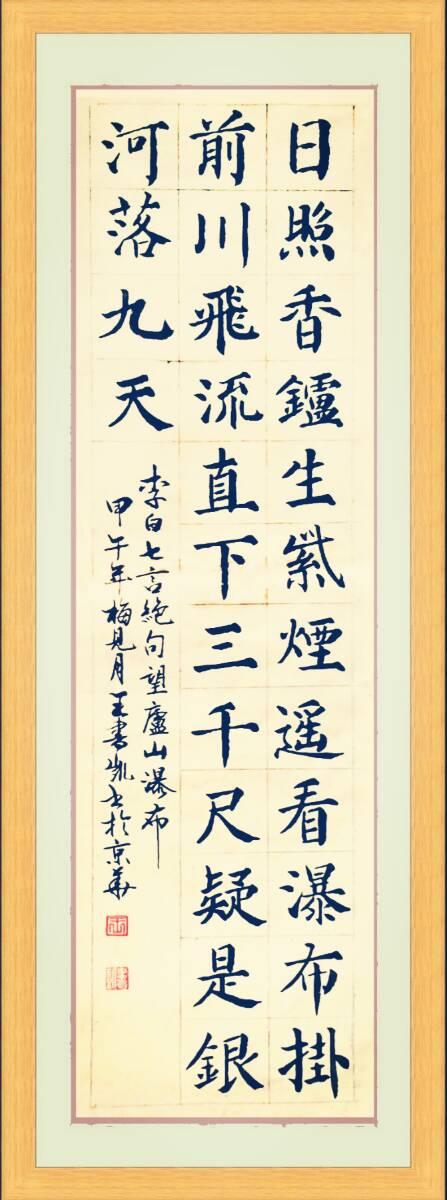 日照香鑪生紫煙遥看瀑布掛
前川飛流直下三千尺疑是銀
河落九天
李白七言絶句望廬山瀑布
甲午年梅見月王書凱書於京華